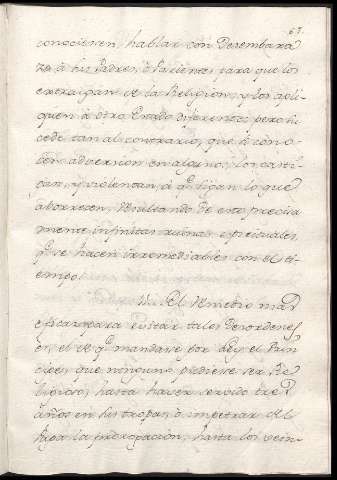 63.
conociesen, hablar con Desembara
zo â sus Padres, ô Parientes para que los
extraigan de la Religion, y los apli-
quen â otro Estado diferente; pero su
cede tan al contrario, que si cono-
cen adversion en alguno, los casti-
gan, y violentan, â qe. sigan lo que
aborrecen, resultando de esto precisa
mente infinitas ruinas espirituales,
qe. se hacen irremediables con el ti-
empo.
El remedio mas
eficaz para evitar tales Desordenes
es, el de qe. mandase por Ley el Prin
cipe, que ninguno pudiese ser Re-
ligioso, hasta haver servido tres
años en sus tropas, ô impetrar del
Papa la prorogacion, hasta los vein-